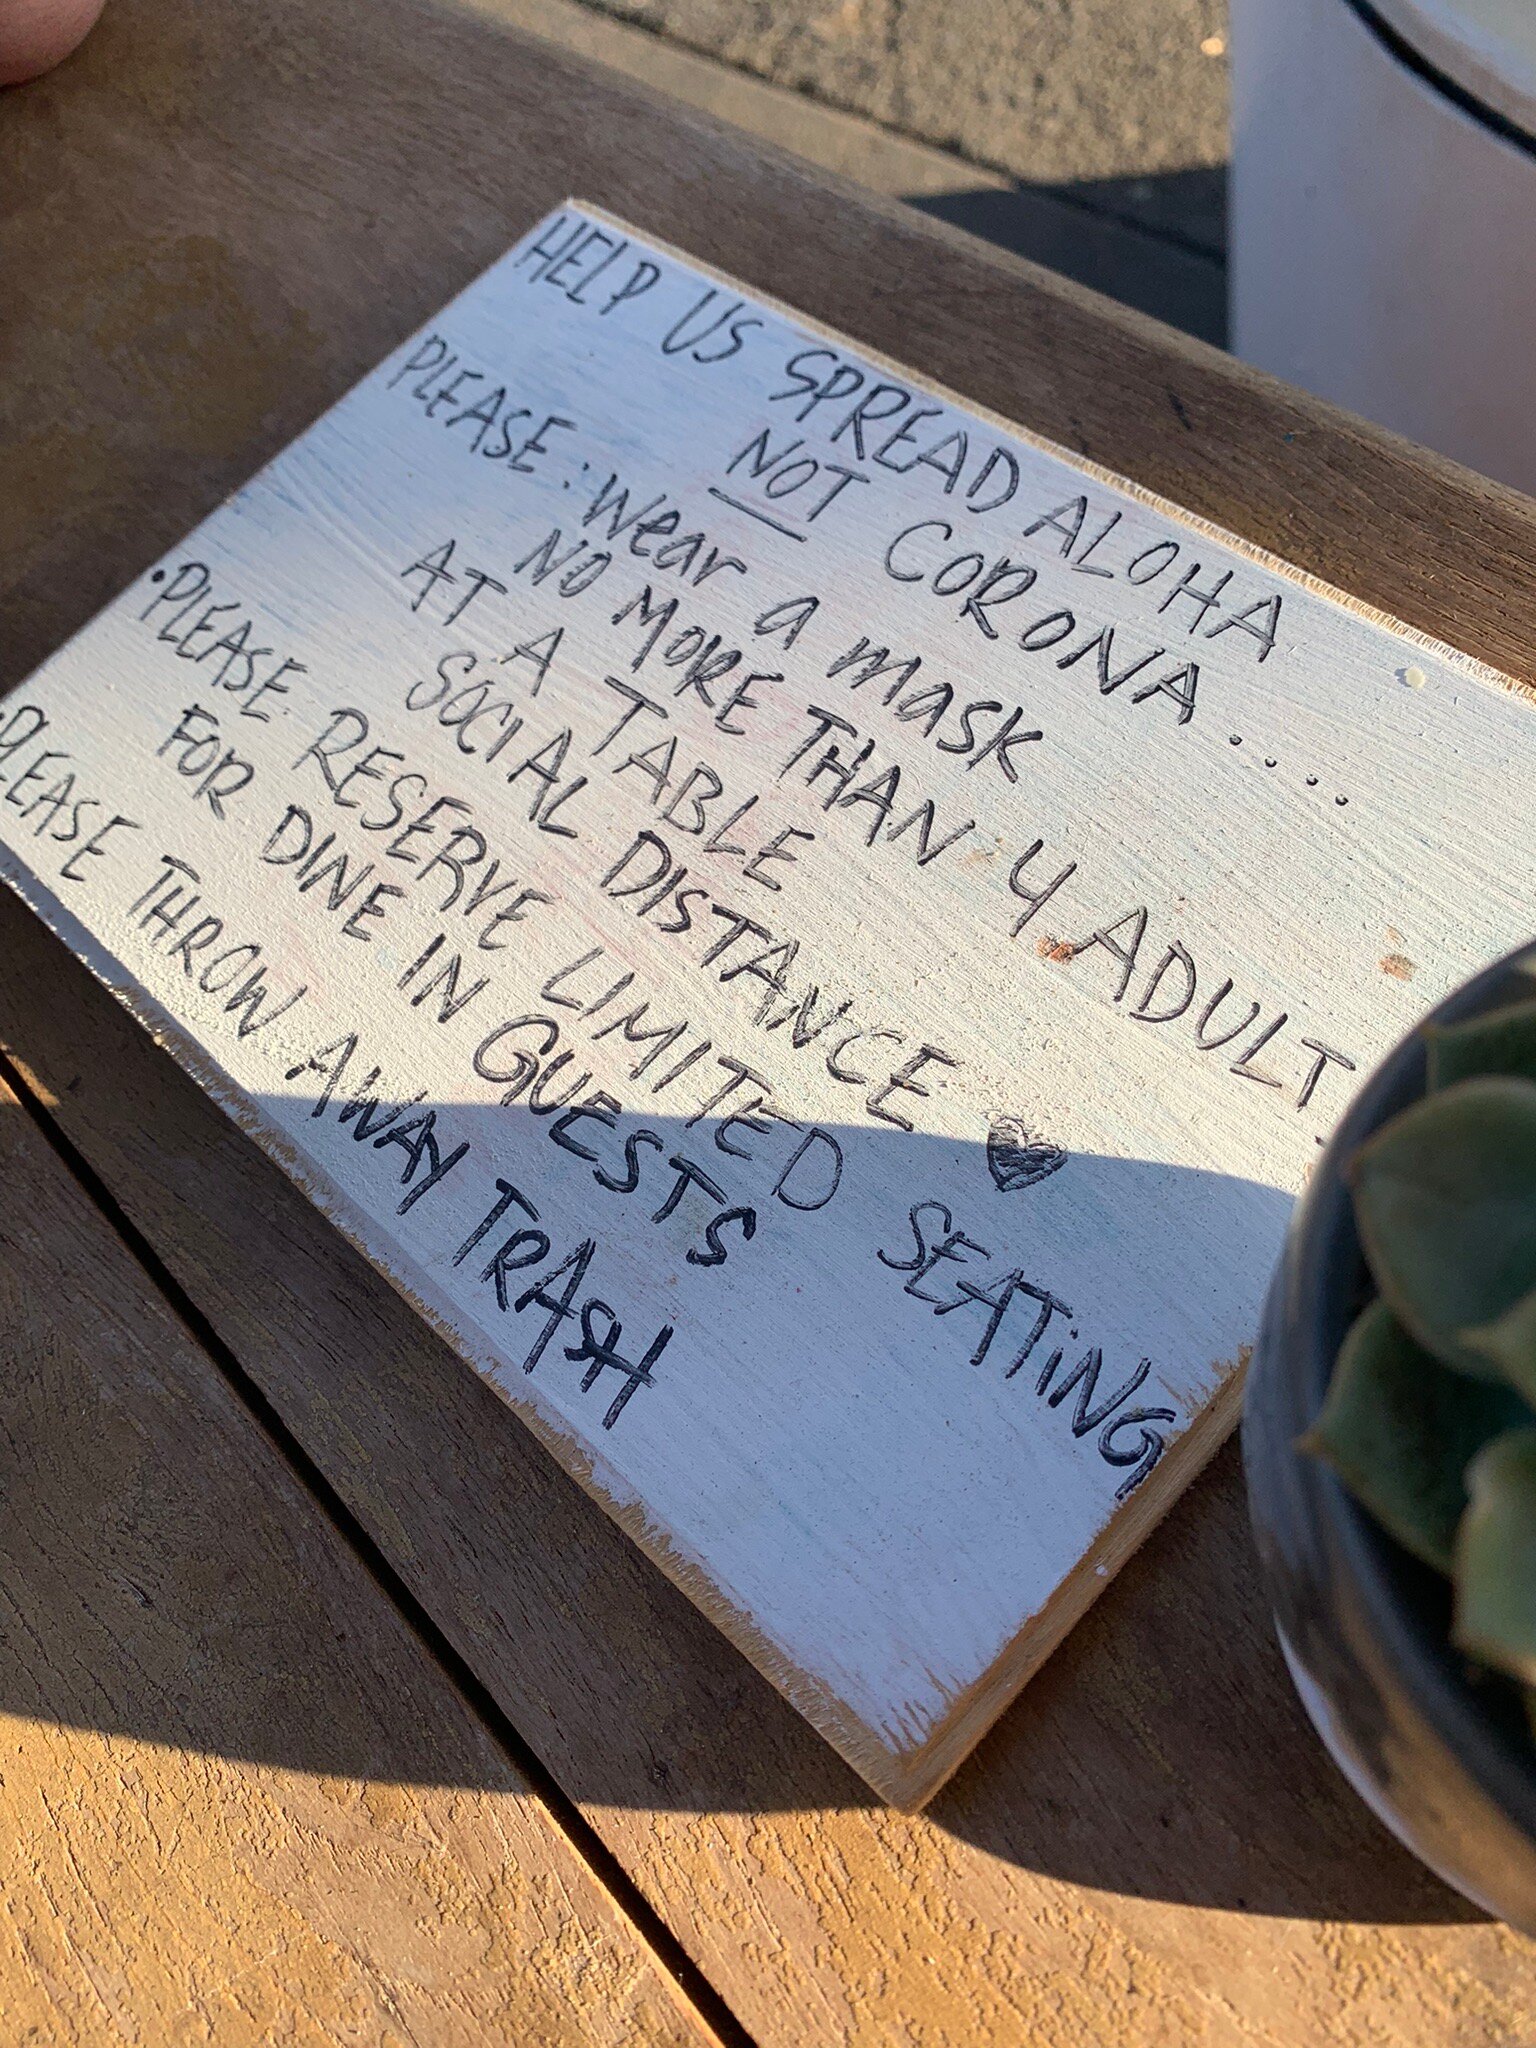 HELP US SPREAD ALOHA
NOT CORONA ....
PLEASE: wear a mask
NO MORE THAN 4 ADULT
AT A TABLE
SOCIAL DISTANCE ♥
• PLEASE RESERVE LIMITED SEATiNG
FOR DINE IN GUESTS
• PLEASE THROW AWAY TRASH